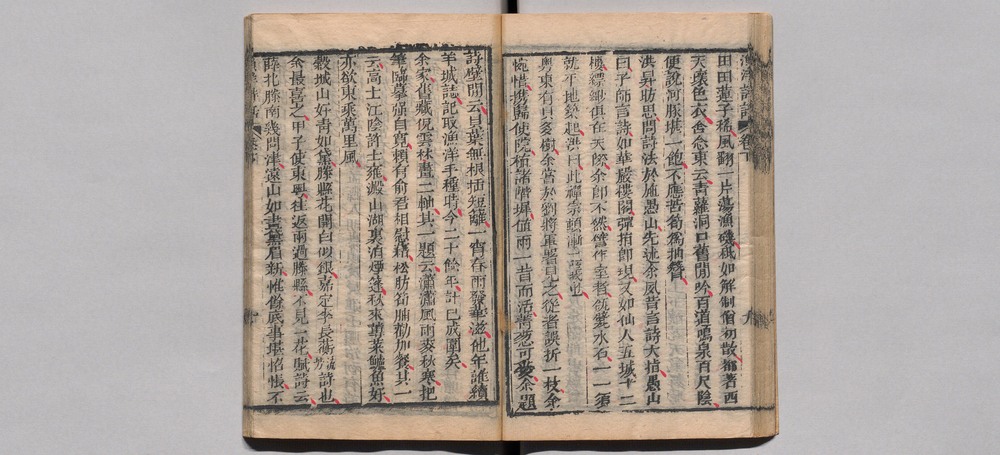 漁洋詩話 卷下
田田蓮子稀風翻一片蕩漁磯我如解制僧初散都著西
天壞色衣舍念東云青蘿洞口舊聞吟百道鳴泉百尺陰
便說河豚堪一飽不應哲筍為抽簪
洪昇昉思問詩法於施愚山先述余夙昔言詩大指愚山
曰子師言詩如華嚴樓閣彈指即現又如仙人五城十二
樓縹緲俱在天際余即不然譬作室者瓴甓木石一一須
就平地築起洪曰此禪宗頓漸二義也
粵東有貝多樹余嘗於劉將軍署見之從者誤折一枝余
惋惜攜歸使院梳諸階墀值雨一昔而活菁葱可愛余題
詩壁間云貝葉無根插短籬一宵春雨發華滋他年誰續
羊城誌記取漁洋手種時今二十餘年計已成圍矣
余家舊藏倪雲林畫二軸其一題云蕭蕭風雨麥秋寒把
筆臨摹強自寬賴有俞君相慰藉松肪筍脯勸加餐其一
云高士江陰許士雍澱山湖裏泊煙逵秋來蓴菜鱸魚好
亦欲東乘萬里風
穀城山好青如黛滕縣花開白似銀嘉定李長蘅流芳詩也
余最喜之甲子使東粵往返兩過滕縣不見一花賦詩云
陸北滕南幾問津遠山如畫黛眉新惟餘底事堪惆悵不